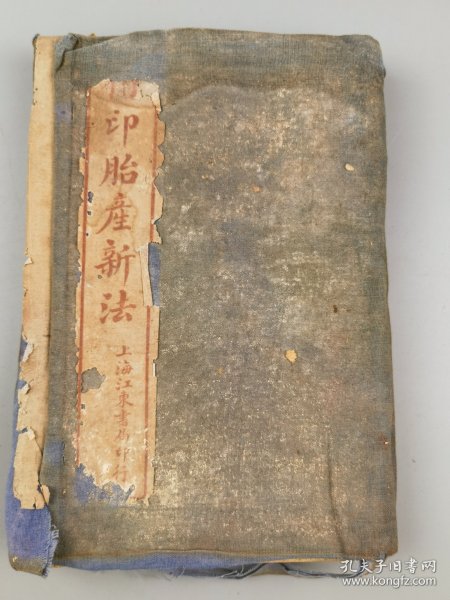 印胎産新法
上海江東書局印行
孔夫子旧书网
www.kongfz.com